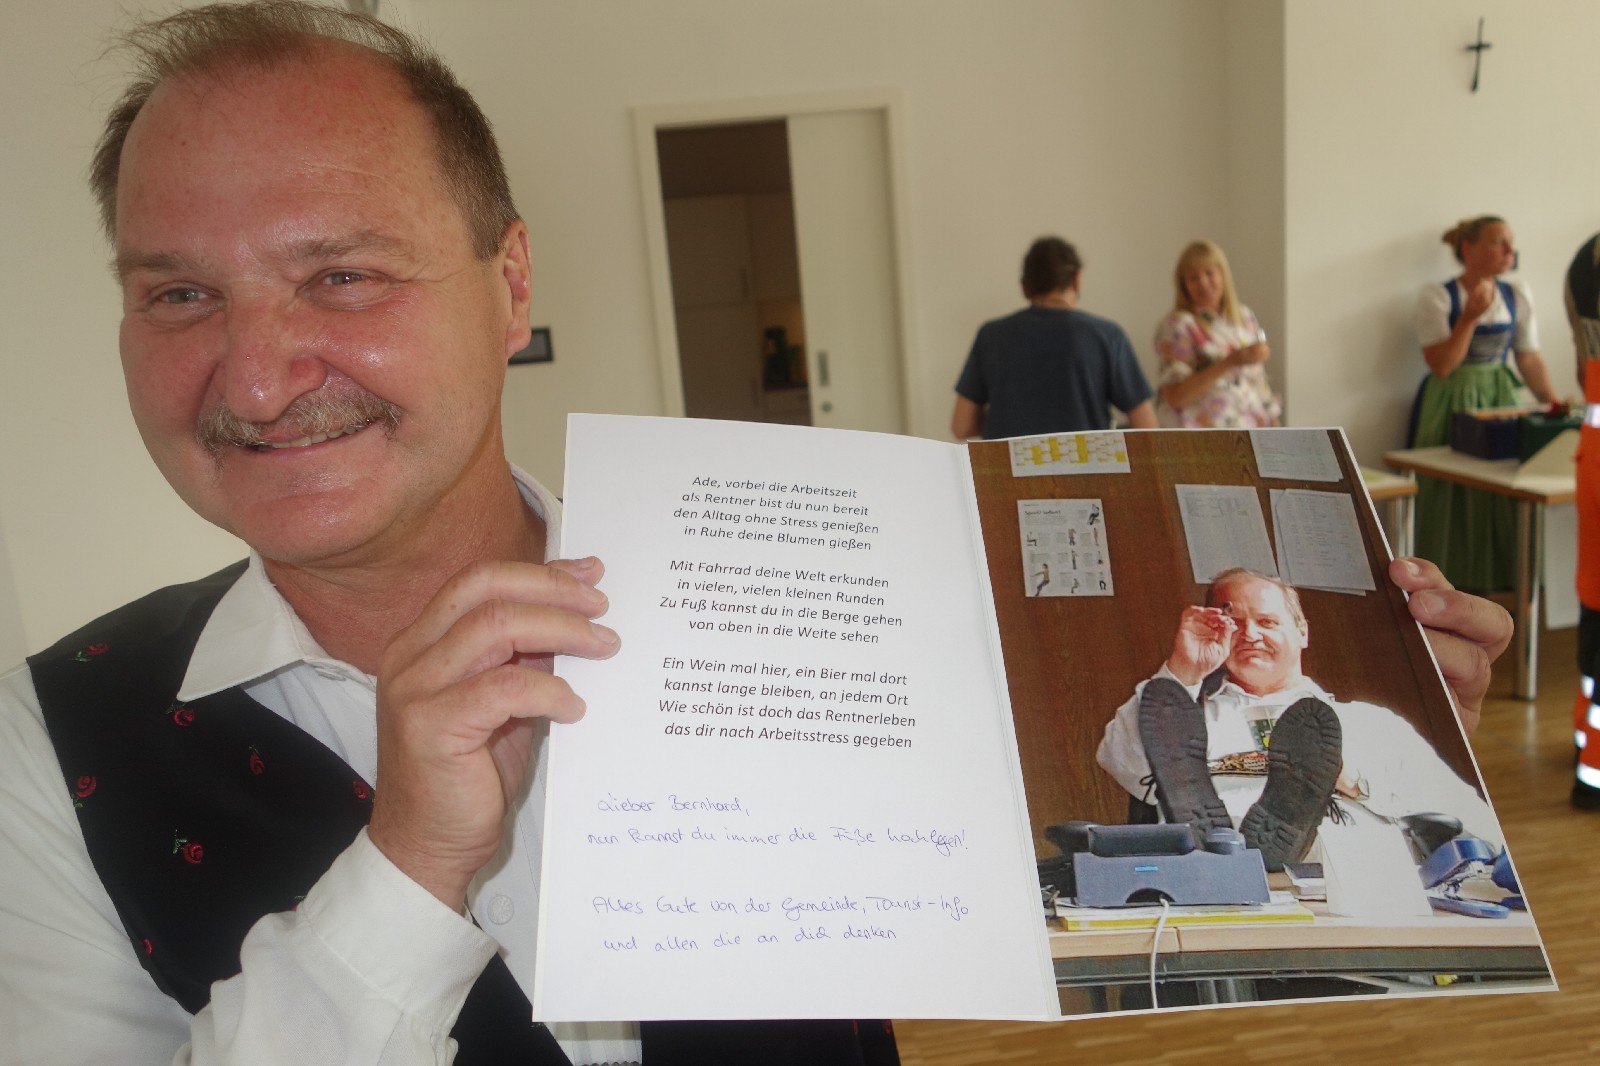 Ade, vorbei die Arbeitszeit
als Rentner bist du nun bereit
den Alltag ohne Stress genießen
in Ruhe deine Blumen gießen
Mit Fahrrad deine Welt erkunden
in vielen, vielen kleinen Runden
Zu Fuß kannst du in die Berge gehen
von oben in die Weite sehen
Ein Wein mal hier, ein Bier mal dort
kannst lange bleiben, an jedem Ort
Wie schön ist doch das Rentnerleben
das dir nach Arbeitsstress gegeben
Lieber Bernhard,
nun kannst du immer die Füße hochlegen!
Alles Gute von der Gemeinde, Tourist-Info
und allen die an dich denken